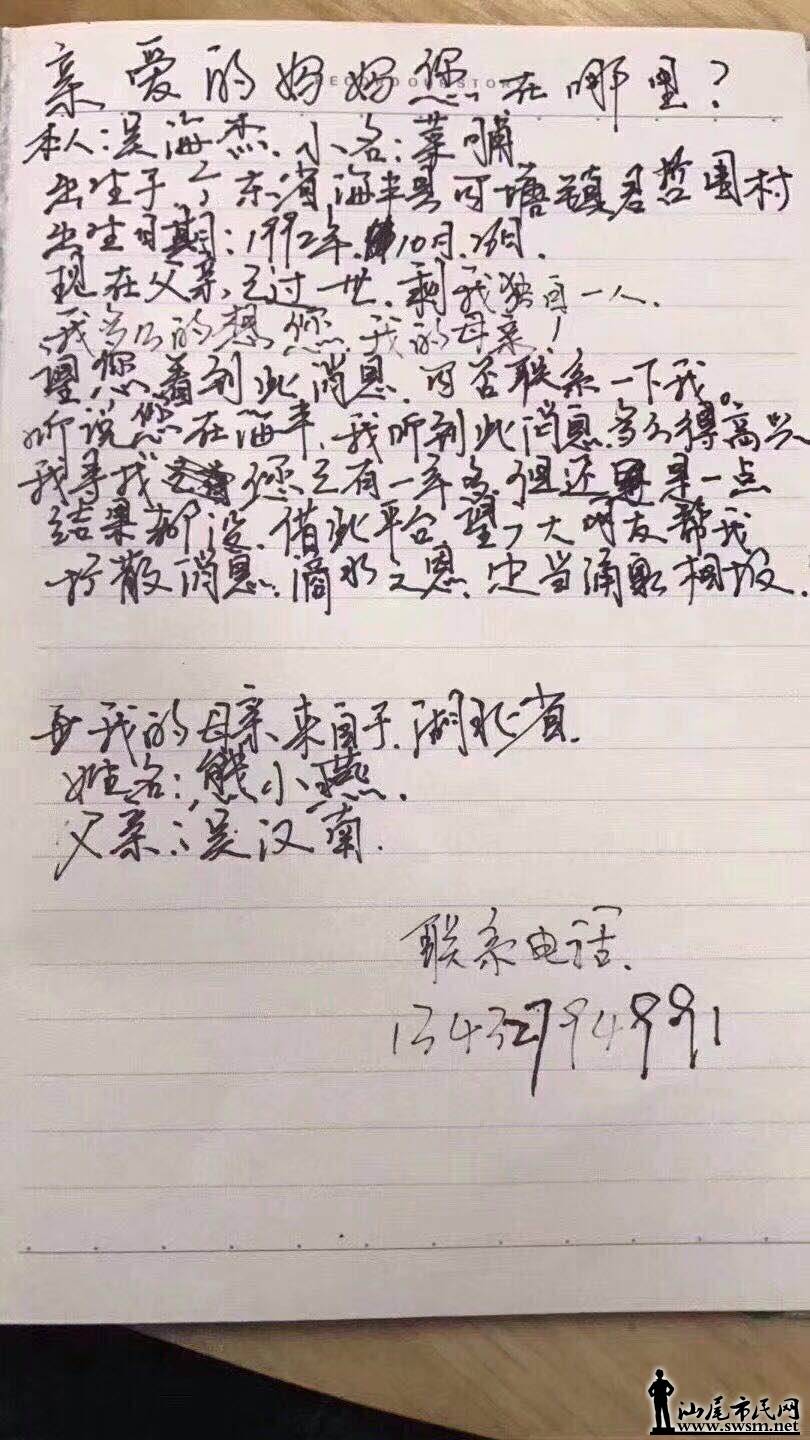 亲爱的妈妈您在哪里?
本人:吴海杰.小名:菜哺
出生于.广东省海丰县可塘镇君哲围村
出生日期:1992年.10月.26日.
现在父亲已过世.剩我独自一人.
我多么的想您.我的母亲!
望您看到此消息.可否联系一下我。
听说您在海丰.我听到此消息多么得高兴
我寻找您已有一年多.但还是一点
结果都没.借此平台.望广大朋友帮我
扩散消息.滴水之恩.忠当涌泉相报.
我的母亲来自于.湖北省.
姓名:熊小燕.
父亲:吴汉南.
联系电话.
13432794991
汕尾市民网
www.swsm.net